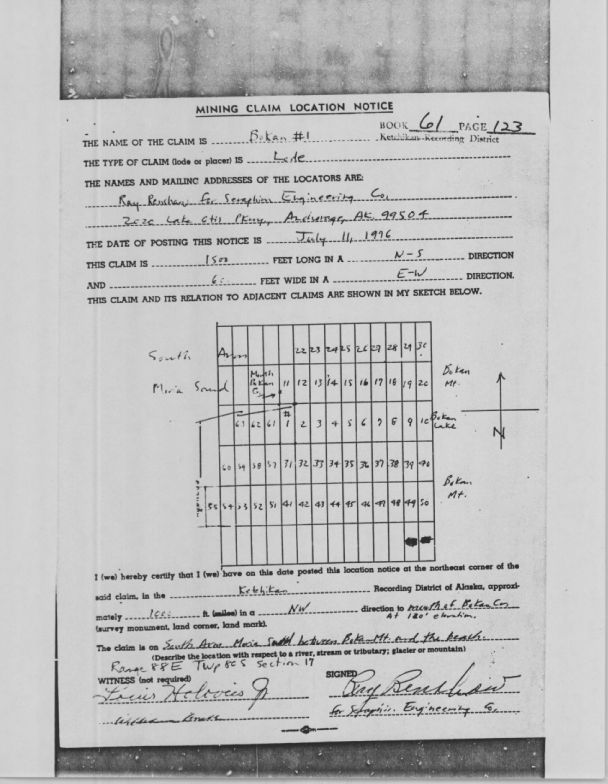 MINING CLAIM LOCATION NOTICE
BOOK 61 PAGE 123
Ketchikan Recording District
THE NAME OF THE CLAIM IS Bokan #1
THE TYPE OF CLAIM (lode or placer) IS Lode
THE NAMES AND MAILING ADDRESSES OF THE LOCATORS ARE:
Ray Renshaw for Seraphim Engineering Co,
2020 Lake Otis Pkwy, Anchorage, AK 99504
THE DATE OF POSTING THIS NOTICE IS July 11, 1976
THIS CLAIM IS 1500 FEET LONG IN A N-S DIRECTION
AND FEET WIDE IN A E-W DIRECTION.
THIS CLAIM AND ITS RELATION TO ADJACENT CLAIMS ARE SHOWN IN MY SKETCH BELOW.
South Arm 22 23 24 25 26 27 28 29 30
Moria Sound Mouth Bokan C 11 12 13 14 15 16 17 18 19 20 Bokan Mt.
63 62 61 #1 2 3 4 5 6 7 8 9 10 Bokan Lake
N
60 59 58 57 31 32 33 34 35 36 37 38 39 40
Bokan Mt.
55 54 53 52 51 41 42 43 44 45 46 47 48 49 50
I (we) hereby certify that I (we) have on this date posted this location notice at the northeast corner of the
said claim, in the Ketchikan Recording District of Alaska, approxi-
mately ft. (miles) in a NW direction to mouth of Bokan
At 120' elevation.
(survey monument, land corner, land mark).
The claim is on South Arm Moria Sound between Bokan Mt. and the beach.
(Describe the location with respect to a river, stream or tributary; glacier or mountain)
Range 88E Twp 80S Section 17
WITNESS (not required)
SIGNED
Louis Jr
Ray Renshaw
for Seraphim Engineering Co,